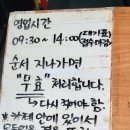 영업시간
09:30 ~ 14:00 (대기표 접수마감)
순서 지나가면
"무효" 처리합니다.
→ 다시 적어야 함.
* 가게 안에 있어서